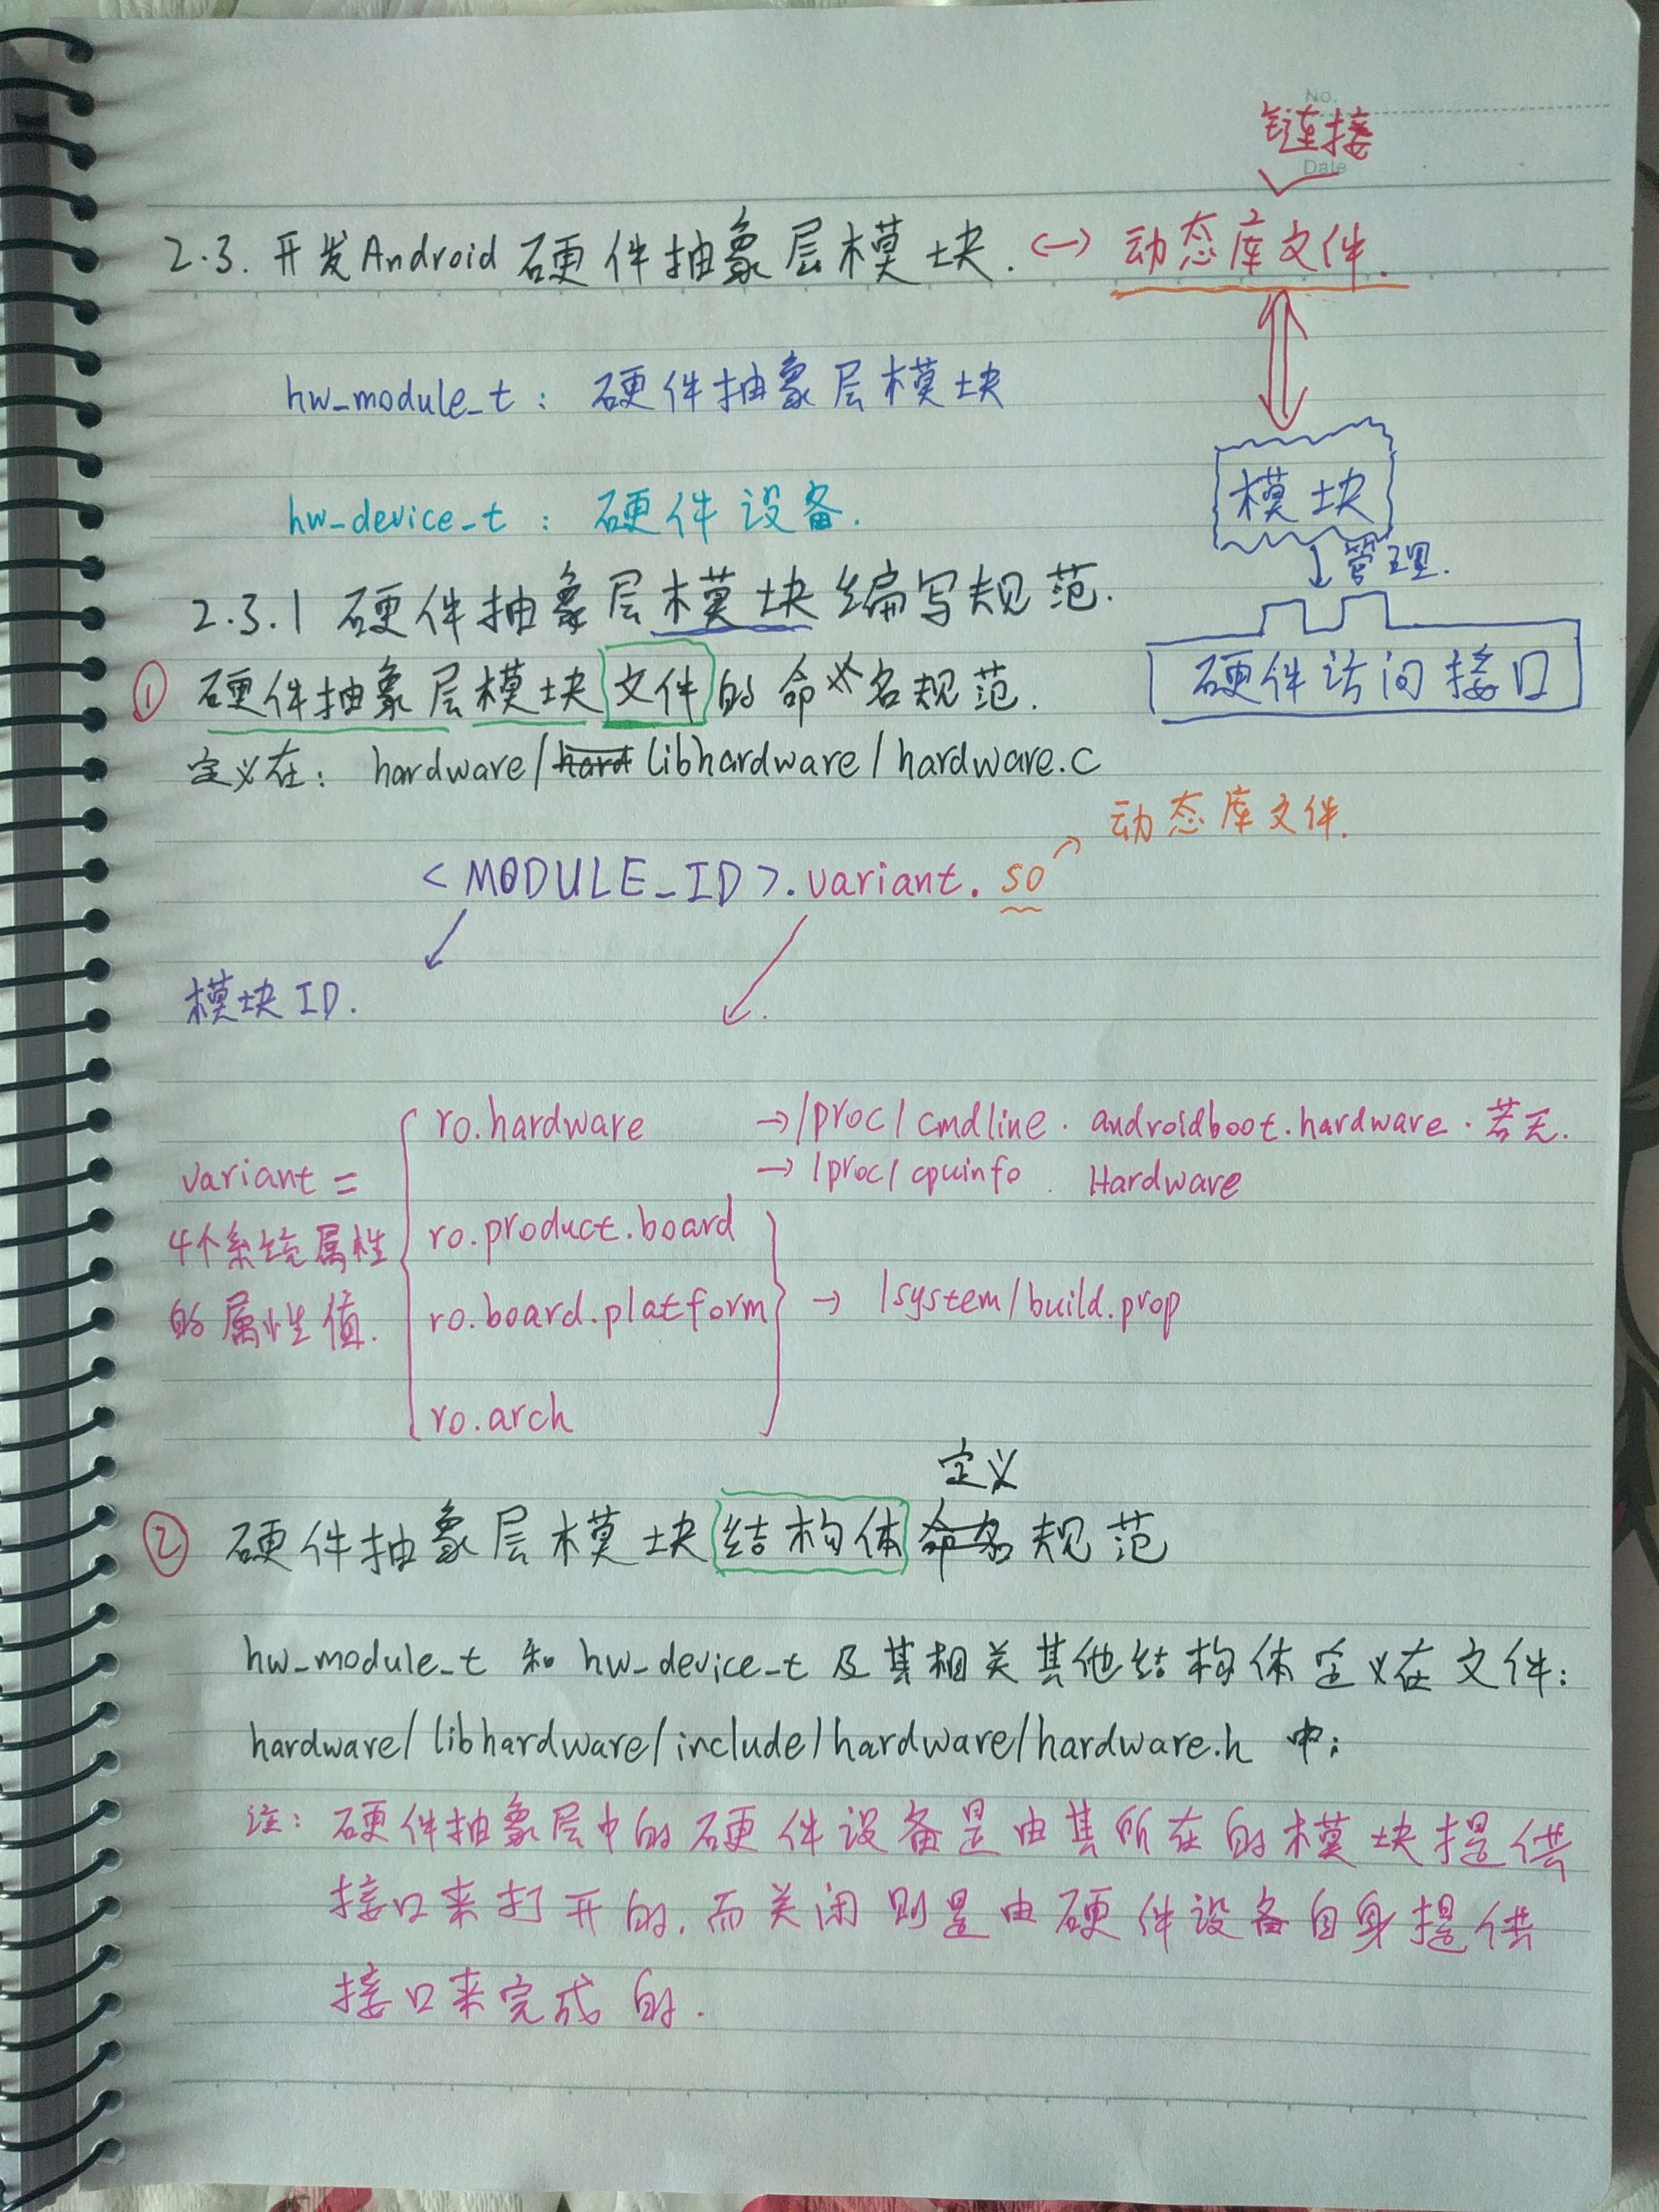 No.
链接
Date
2.3. 开发Android 硬件抽象层模块. <-> 动态库文件.
hw_module_t : 硬件抽象层模块
模块
hw_device_t : 硬件设备.
↓管理.
2.3.1 硬件抽象层模块编写规范.
硬件访问接口
① 硬件抽象层模块文件的命名规范.
定义在: hardware/hard libhardware/hardware.c
动态库文件.
<MODULE_ID>.variant.so
模块ID.
ro.hardware →/proc/cmdline. androidboot.hardware.若无.
variant = → /proc/cpuinfo. Hardware
4个系统属性 ro.product.board
的属性值. ro.board.platform → /system/build.prop
ro.arch
定义
② 硬件抽象层模块结构体命名规范
hw_module_t 和 hw_device_t 及其相关其他结构体定义在文件:
hardware/libhardware/include/hardware/hardware.h 中;
注: 硬件抽象层中的硬件设备是由其所在的模块提供
接口来打开的,而关闭则是由硬件设备自身提供
接口来完成的.